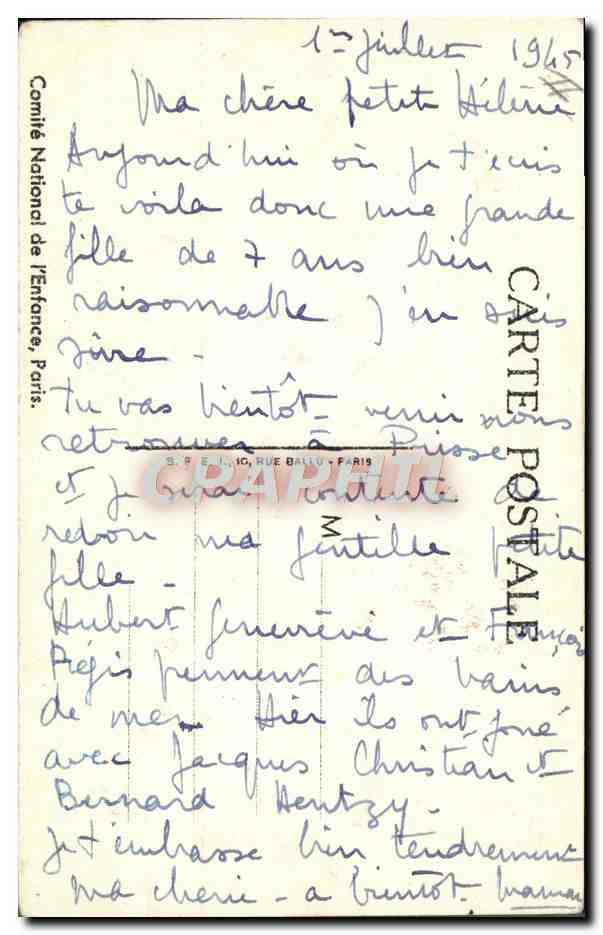 1er juillet 1945
Ma chère petite Hélène
Aujourd'hui où je t'écris
te voilà donc une grande
fille de 7 ans bien
raisonnable j'en suis
sûre -
Tu vas bientôt venir nous
retrouver à
et je serai contente de
revoir ma gentille petite
fille -
Hubert Geneviève et François
Régis prennent des bains
de mer. Hier ils ont joué
avec Jacques Christian et
Bernard Hentzy -
Je t'embrasse bien tendrement
ma chérie - a bientôt - Maman
Comité National de l'Enfance, Paris.
CARTE POSTALE
S. P. E. I., 10, RUE BALLU - PARIS
M
CPAPHIL